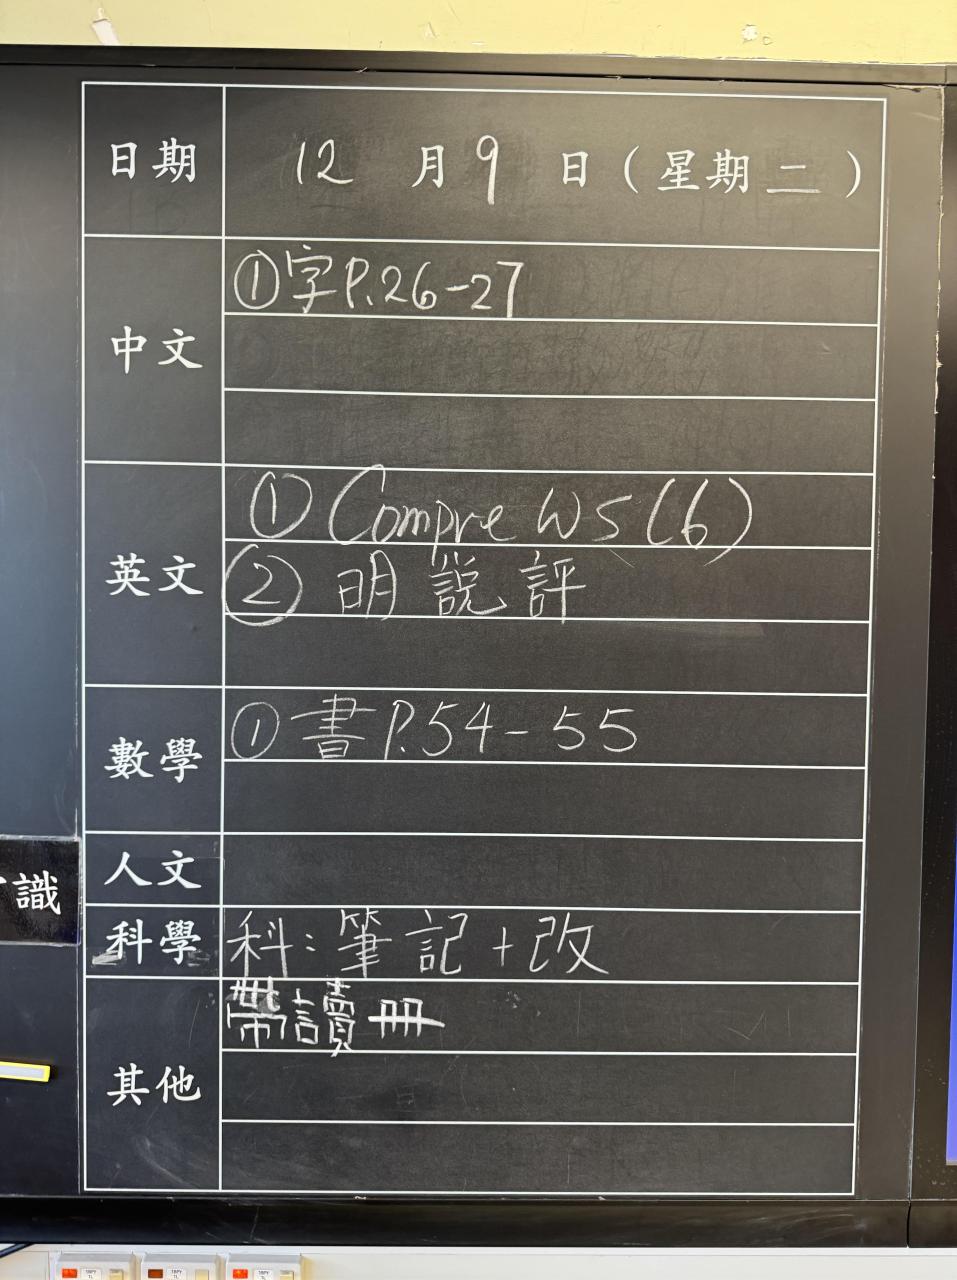 日期 12 月 9 日（星期二）
中文 ①字P.26-27
英文 ① Compre WS(6)
② 明說評
數學 ① 書P.54-55
人文
識
科學 科:筆記+改
其他 帶讀冊